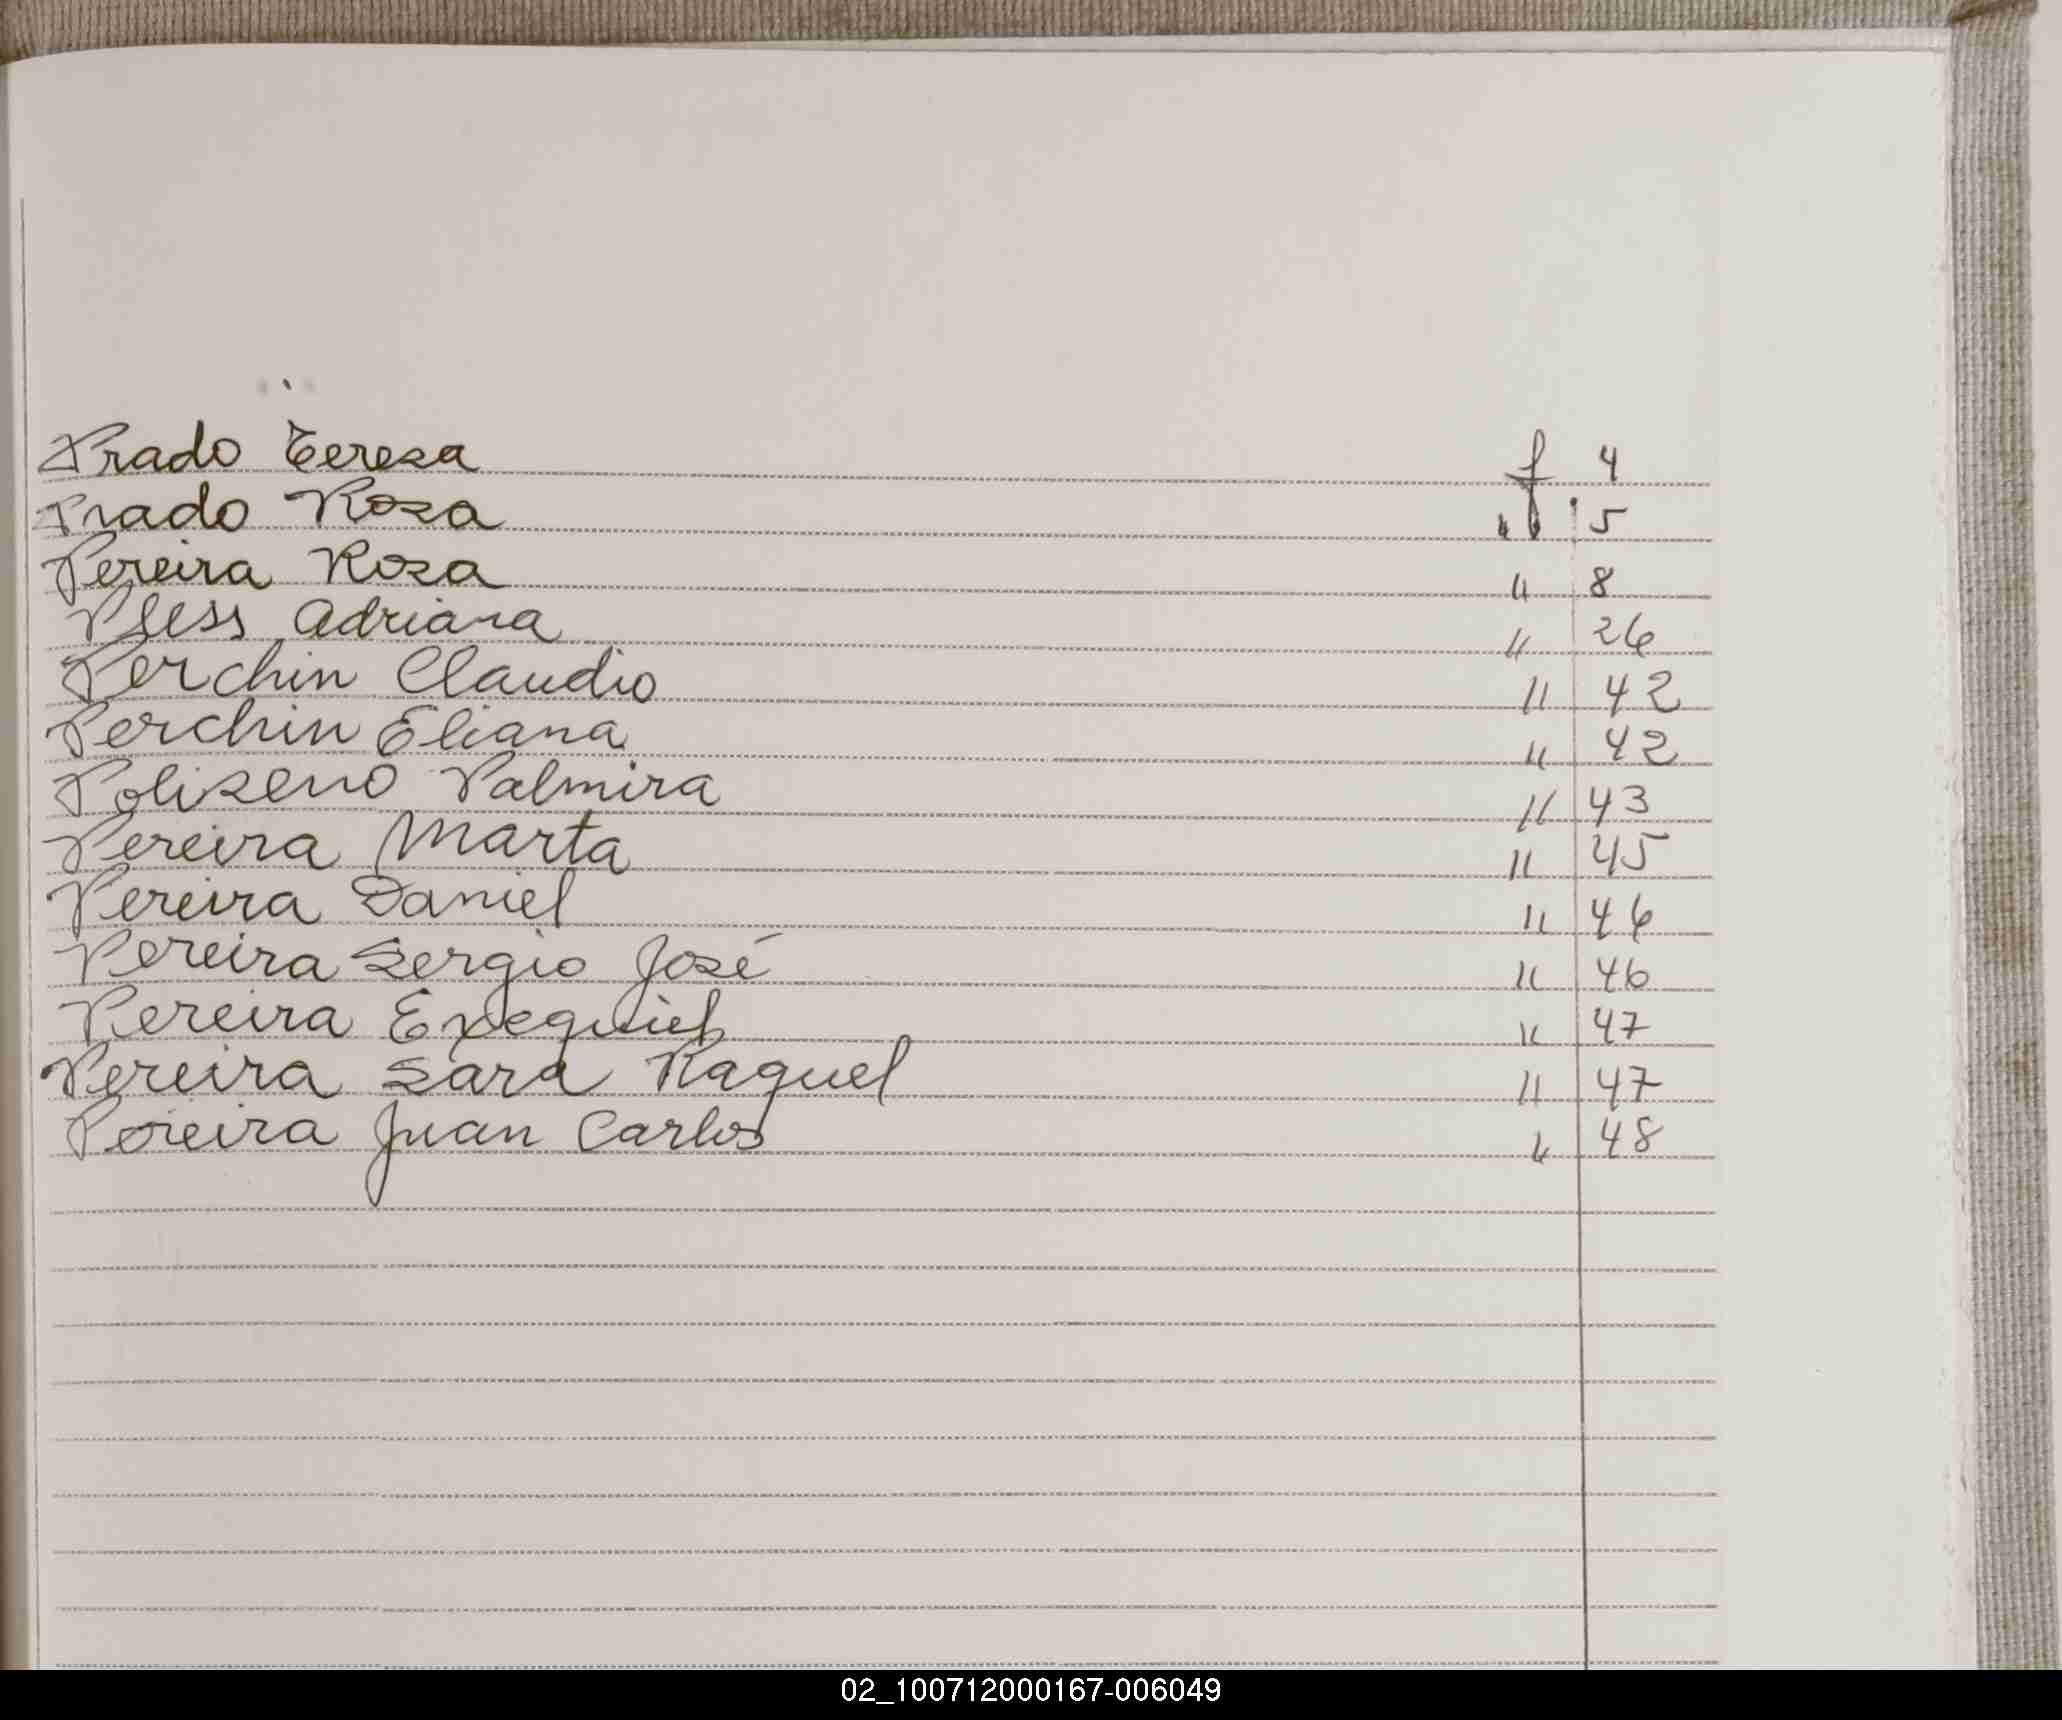 Prado Teresa f 4
Prado Rosa " 5
Pereira Rosa " 8
Adriana " 26
Perchin Claudio " 42
Perchin Eliana " 42
Poliseno Palmira " 43
Pereira Marta " 45
Pereira Daniel " 46
Pereira Sergio José " 46
Pereira Exequiel " 47
Pereira Sara Raquel " 47
Pereira Juan Carlos " 48
02_100712000167-006049